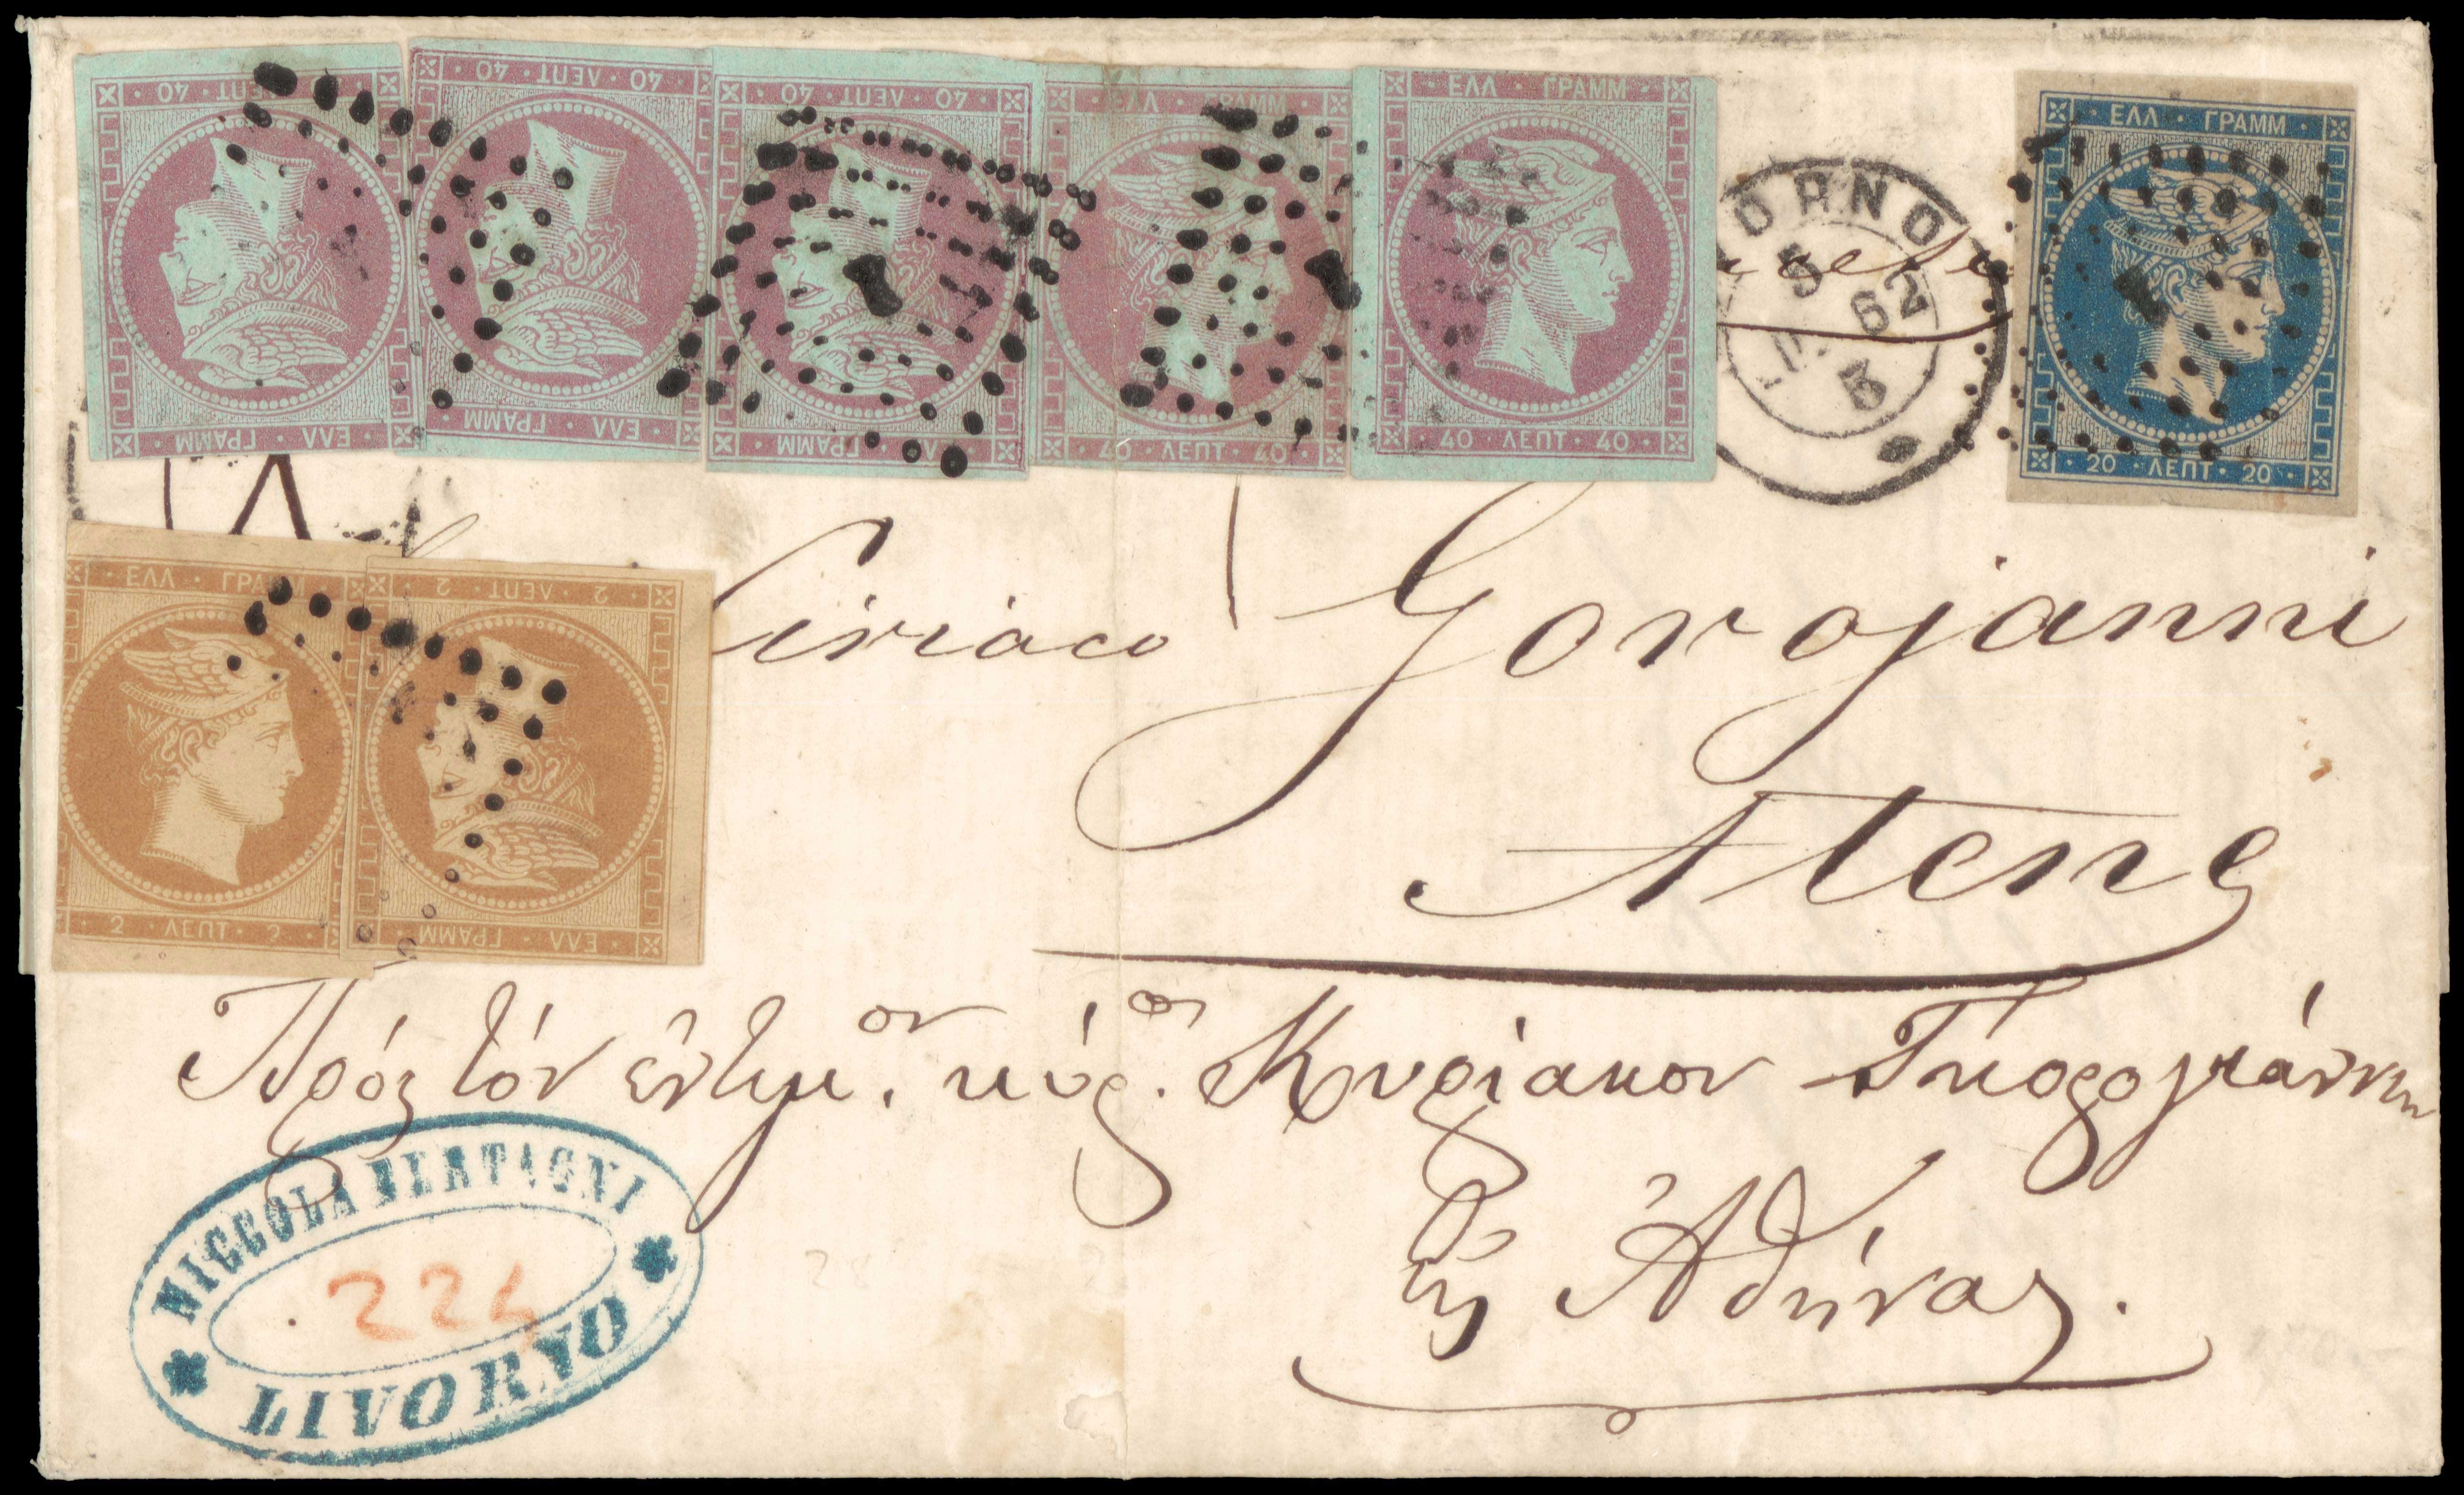 40 · ΛΕΠΤ · 40
ΕΛΛ · ΓΡΑΜΜ
40 · ΛΕΠΤ · 40
ΕΛΛ · ΓΡΑΜΜ
40 · ΛΕΠΤ · 40
ΕΛΛ · ΓΡΑΜΜ
ΕΛΛ · ΓΡΑΜΜ
40 · ΛΕΠΤ · 40
ΕΛΛ · ΓΡΑΜΜ
40 · ΛΕΠΤ · 40
ORNO
5
62
3
ΕΛΛ · ΓΡΑΜΜ
20 · ΛΕΠΤ · 20
ΕΛΛ · ΓΡΑΜΜ
2 · ΛΕΠΤ · 2
2 · ΛΕΠΤ · 2
ΕΛΛ · ΓΡΑΜΜ
Ciriaco Gorojanni
Atene
Πρός τόν ἐντιμ.ον κύρ.ον Κυριακον Γκορογιάννη
εἰς Ἀθήνας.
NICCOLA BERTAGNI
224
LIVORNO